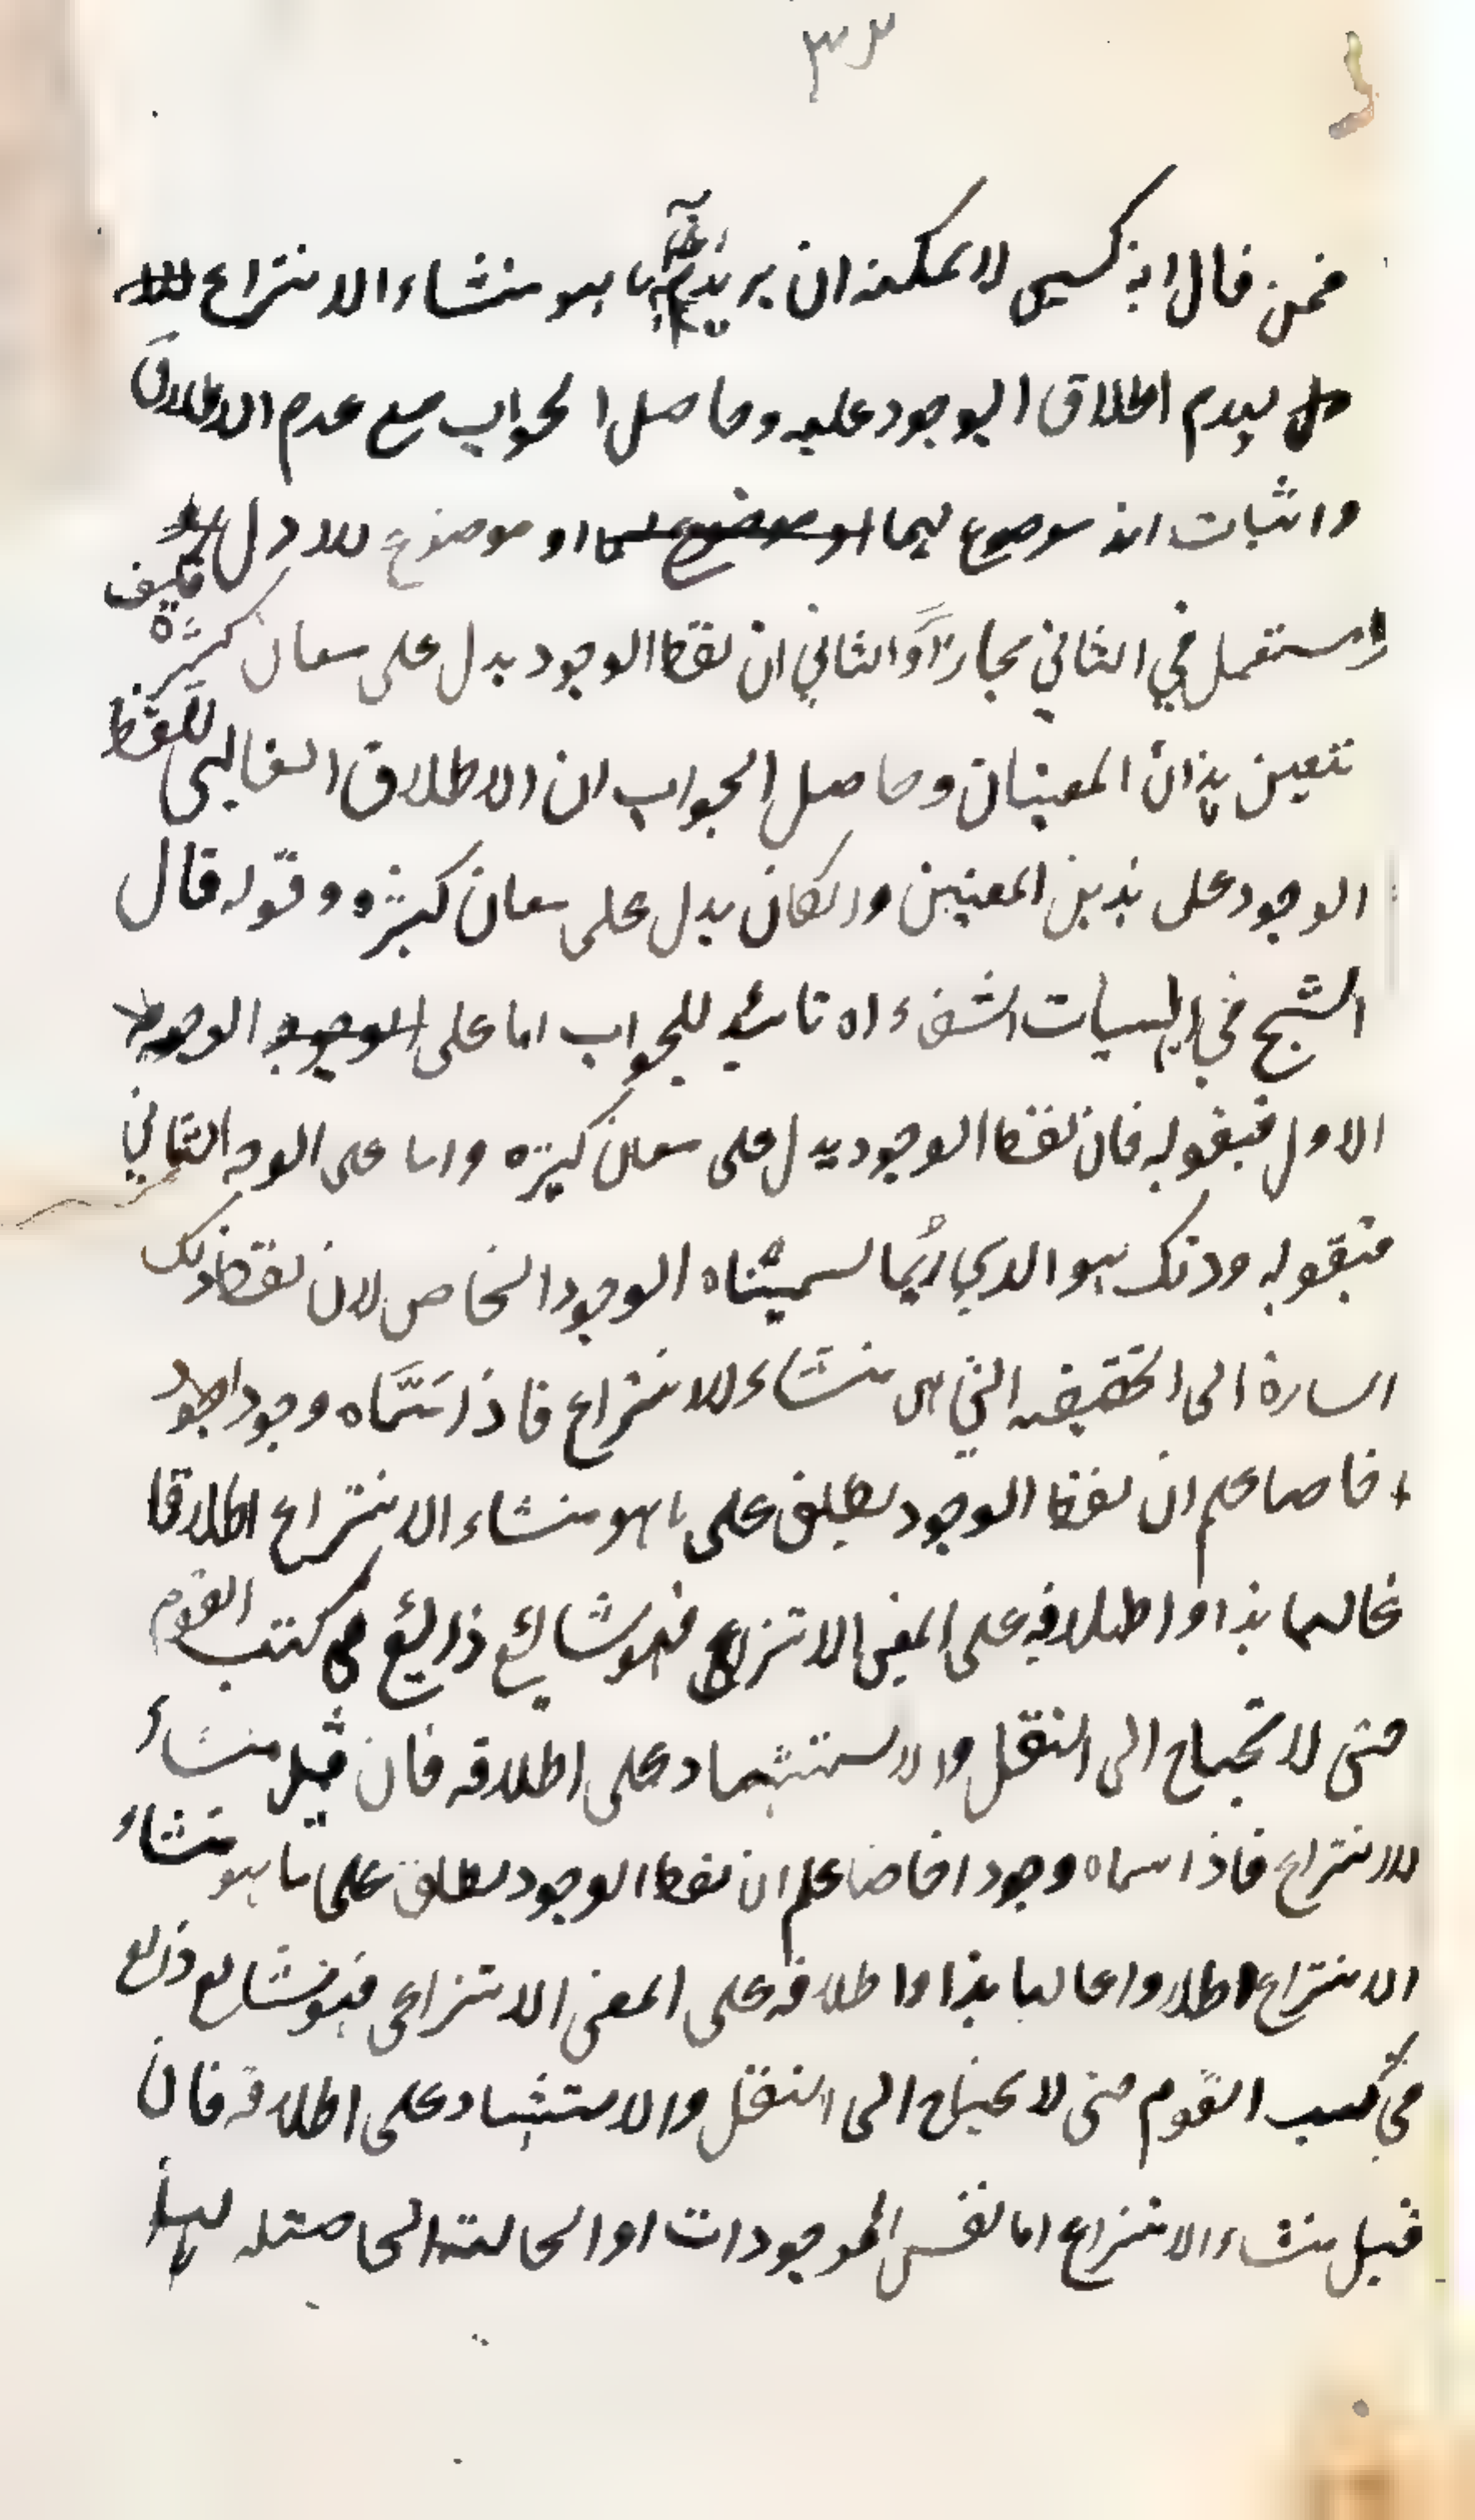 ٣٢
فمن قال انه كسبي لا يمكنه ان يريد ما هو منشاء الانتزاع
بعدم اطلاق الوجود عليه وحاصل الجواب منع عدم الاطلاق
واثبات انه موضوع لهما او موضوع للاول
استعمل في الثاني مجازا والثاني ان لفظ الوجود يدل على معان كثيرة فكيف
تتعين هذان المعنيان وحاصل الجواب ان الاطلاق الغالبي للفظ
الوجود على هذين المعنيين وان كان يدل على معان كثيره وقوله قال
الشيخ في الهيات الشفاء اه تائيد للجواب اما على الوجود الوجه
الاول فبقوله فان لفظ الوجود يدل على معان كثيره واما على الوجه الثاني
فبقوله وذلك هو الذي ربما سميناه الوجود الخاص لان لفظ ذلك
اشارة الى الحقيقه التي هي منشاء للانتزاع فاذا سماه وجودا
خاصا علم ان لفظ الوجود يطلق على ما هو منشاء الانتزاع اطلاقا
غالبا هذا واطلاقه على المعنى الانتزاعي فهو شائع ذائع في كتب القوم
حتى لا تحتاج الى النقل والاستشهاد على اطلاقه فان قيل منشاء
للانتزاع فاذا سماه وجودا خاصا علم ان لفظ الوجود يطلق على ما هو منشاء
الانتزاع اطلاقا غالبا هذا واطلاقه على المعنى الانتزاعي فهو شايع ذايع
في كتب القوم حتى لا يحتاج الى النقل والاستشهاد على اطلاقه فان
قيل منشاء الانتزاع اما نفس الموجودات او الحالة الحاصلة لها